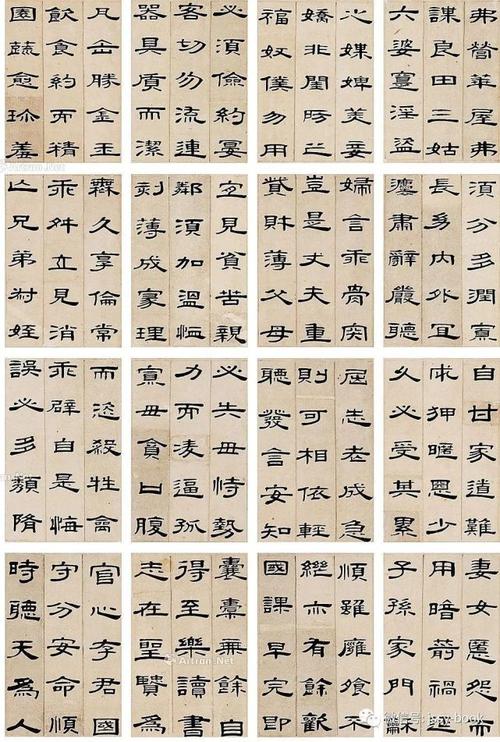 必須儉約宴
客切勿流連
器具質而潔
瓦缶勝金玉
飲食約而精
園蔬愈珍羞
弗營華屋弗
謀良田三姑
六婆寔淫盜
之媒婢美妾
嬌非閨房之
福奴僕勿用
宜見貧苦親
鄰須加溫恤
刻薄成家理
無久享倫常
乖舛立見消
亡兄弟叔姪
須分多潤寡
長幼內外宜
灋肅辭嚴聽
婦言乖骨肉
豈是丈夫重
貲財薄父母
必失毋恃勢
力而凌逼孤
寡毋貪口腹
而恣殺牲禽
乖僻自是悔
誤必多頹隋
自甘家道難
求狎暱惡少
久必受其累
屈志老成急
則可相依輕
聽發言安知
囊橐無餘自
得至樂讀書
志在聖賢為
官心存君國
守分安命順
時聽天為人
妻女匿怨而
用暗箭禍延
子孫家門龢
順雖饔飧不
繼亦有餘歡
國課早完即
Artron.Net